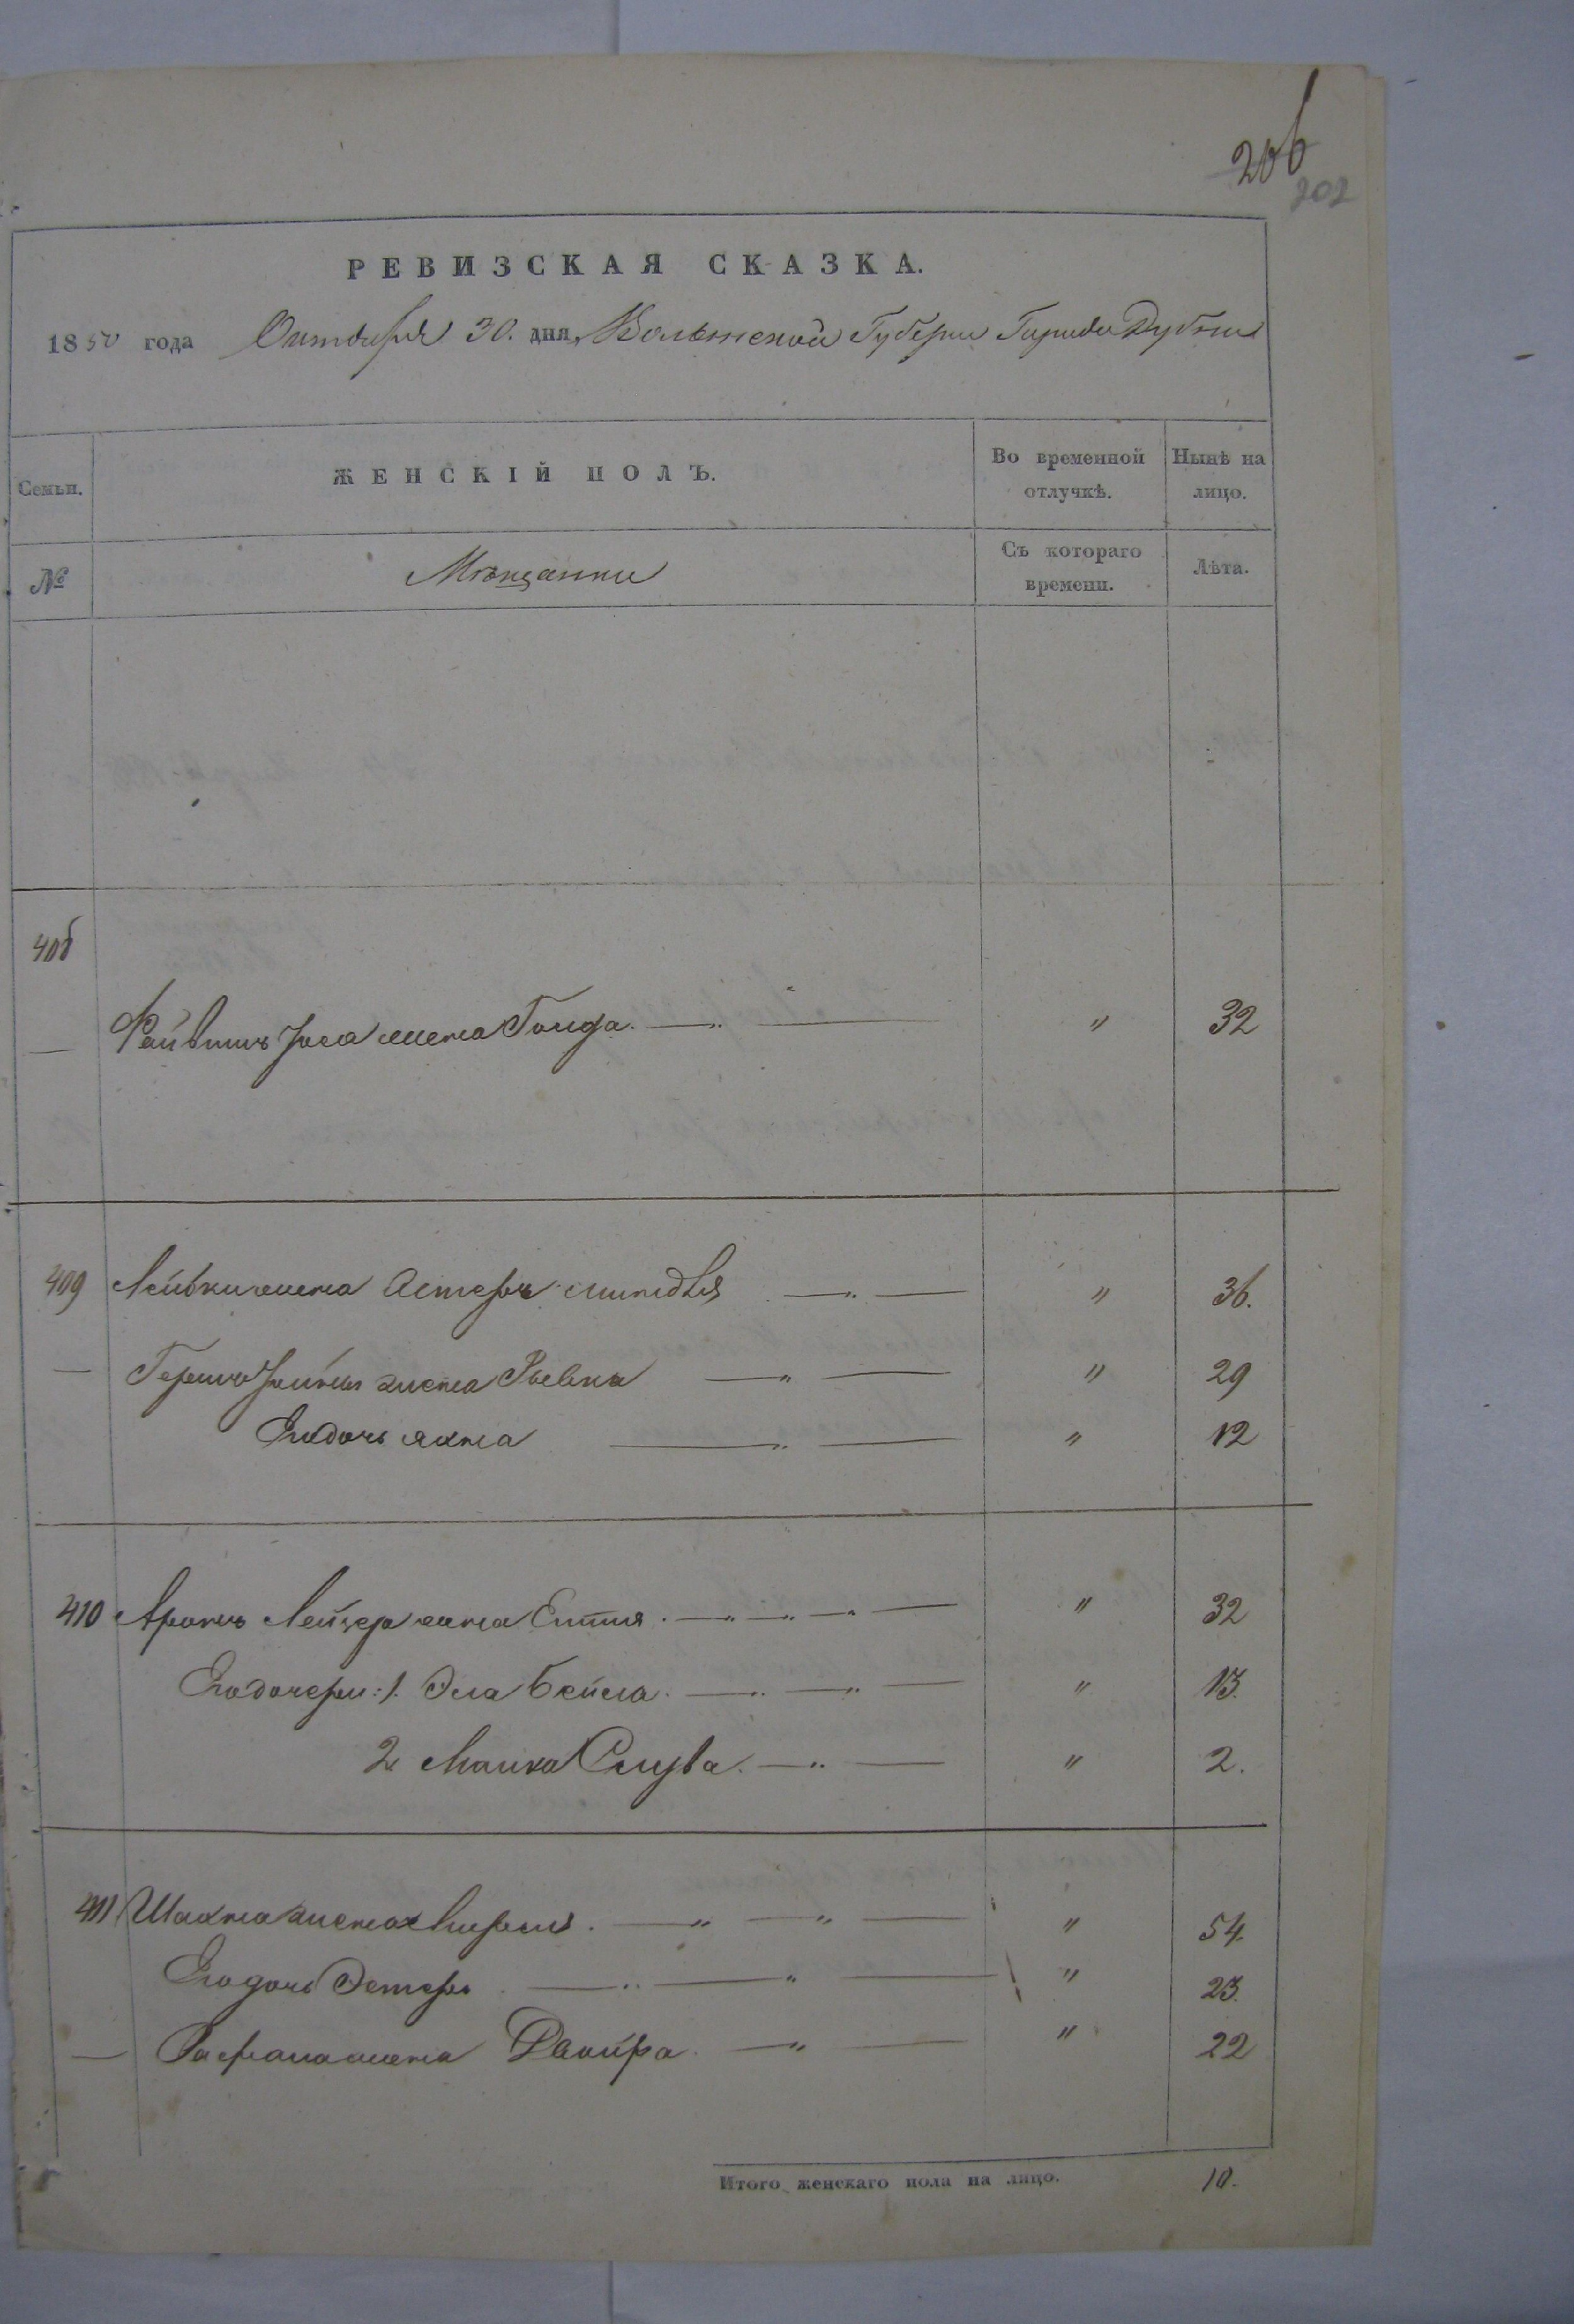 206
202
РЕВИЗСКАЯ СКАЗКА.
1850 года Октября 30. дня, Волынской Губернии Города Дубни
Семьи.
ЖЕНСКІЙ ПОЛЪ.
Во временной отлучкѣ.
Нынѣ на лицо.
№
Мѣщанки
Съ котораго времени.
Лѣта.
408
— Файвишъ жена Голда. — " 32
409 Лейбки жена Естеръ " 36.
— Герша жена Ривка — " 29
Его дочь яхна — " 12
410 Аронъ Лейзера жена — " 32
Его дочери: 1. Эла Бейла. — " 13.
2 Малка Слува. — " 2.
411 Шахна жена — " 54.
Его дочь Эстеръ — " 23.
— жена Двойра — " 22
Итого женскаго пола на лицо. 10.